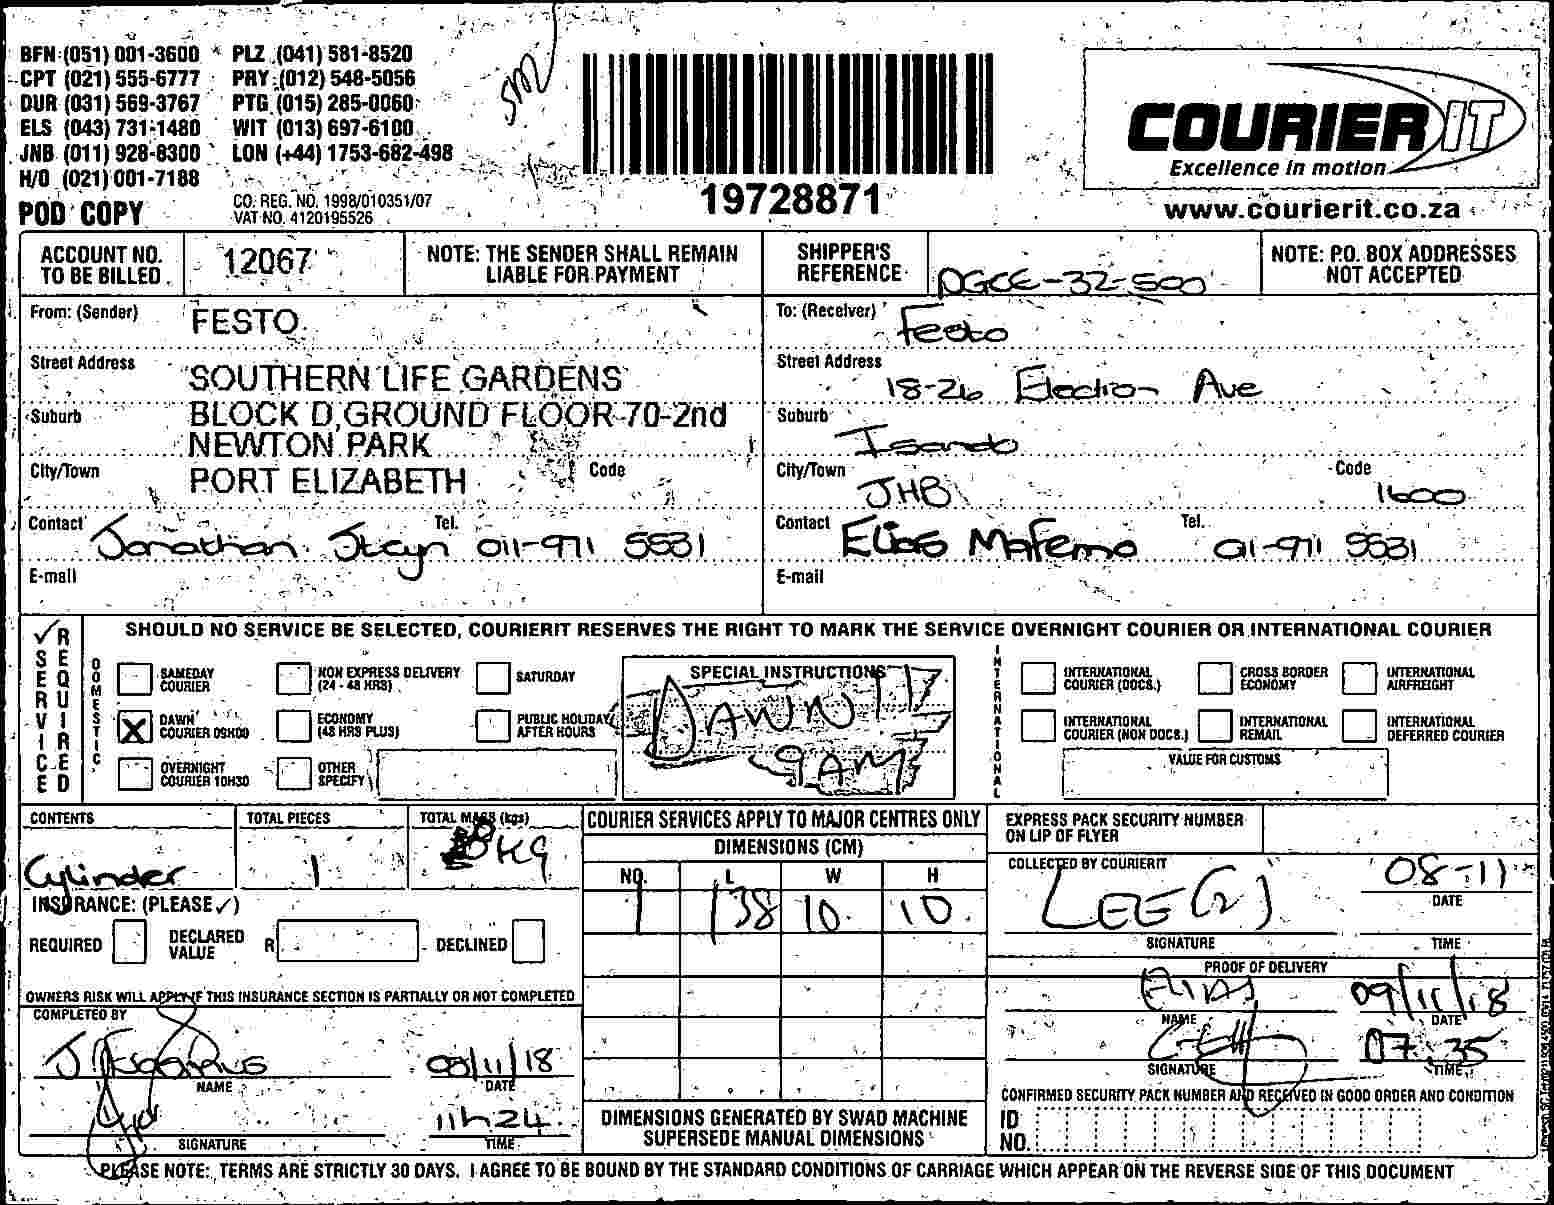 BFN (051) 001-3600 PLZ (041) 581-8520
CPT (021) 555-6777 PRY (012) 548-5056
DUR (031) 569-3767 PTG (015) 285-0060
ELS (043) 731-1480 WIT (013) 697-6100
JNB (011) 928-8300 LON (+44) 1753-682-498
H/O (021) 001-7188
POD COPY
CO. REG. NO. 1998/010351/07
VAT NO. 4120195526
19728871
COURIER IT
Excellence in motion
www.courierit.co.za
ACCOUNT NO. TO BE BILLED 12067
NOTE: THE SENDER SHALL REMAIN LIABLE FOR PAYMENT
SHIPPER'S REFERENCE DGCE-32-500
NOTE: P.O. BOX ADDRESSES NOT ACCEPTED
From: (Sender) FESTO
Street Address SOUTHERN LIFE GARDENS
Suburb BLOCK D,GROUND FLOOR-70-2nd
NEWTON PARK
City/Town PORT ELIZABETH Code
Contact Jonathan Steyn Tel. 011-971 5531
E-mail
To: (Receiver) Festo
Street Address 18-26 Electron Ave
Suburb Isando
City/Town JHB Code 1600
Contact Elias Mafemo Tel. 01-971 5531
E-mail
✓ SERVICE REQUIRED
SHOULD NO SERVICE BE SELECTED, COURIERIT RESERVES THE RIGHT TO MARK THE SERVICE OVERNIGHT COURIER OR INTERNATIONAL COURIER
DOMESTIC
SAMEDAY COURIER
NON EXPRESS DELIVERY (24 - 48 HRS)
SATURDAY
X DAWN COURIER 09H00
ECONOMY (48 HRS PLUS)
PUBLIC HOLIDAY/ AFTER HOURS
OVERNIGHT COURIER 10H30
OTHER SPECIFY
SPECIAL INSTRUCTIONS
DAWN!!
9AM
INTERNATIONAL
INTERNATIONAL COURIER (DOCS.)
CROSS BORDER ECONOMY
INTERNATIONAL AIRFREIGHT
INTERNATIONAL COURIER (NON DOCS.)
INTERNATIONAL REMAIL
INTERNATIONAL DEFERRED COURIER
VALUE FOR CUSTOMS
CONTENTS TOTAL PIECES TOTAL MASS (kgs)
Cylinder 1 KG
INSURANCE: (PLEASE ✓)
REQUIRED DECLARED VALUE R DECLINED
OWNERS RISK WILL APPLY IF THIS INSURANCE SECTION IS PARTIALLY OR NOT COMPLETED
COMPLETED BY
08/11/18
NAME DATE
11h24
SIGNATURE TIME
COURIER SERVICES APPLY TO MAJOR CENTRES ONLY
DIMENSIONS (CM)
NO. L W H
1 138 10. 10.
DIMENSIONS GENERATED BY SWAD MACHINE
SUPERSEDE MANUAL DIMENSIONS
EXPRESS PACK SECURITY NUMBER ON LIP OF FLYER
COLLECTED BY COURIERIT
LEE (2) 08-11
DATE
SIGNATURE TIME
PROOF OF DELIVERY
ELIAS 09/11/18
NAME DATE
07:35
SIGNATURE TIME
CONFIRMED SECURITY PACK NUMBER AND RECEIVED IN GOOD ORDER AND CONDITION
ID NO.
PLEASE NOTE: TERMS ARE STRICTLY 30 DAYS. I AGREE TO BE BOUND BY THE STANDARD CONDITIONS OF CARRIAGE WHICH APPEAR ON THE REVERSE SIDE OF THIS DOCUMENT